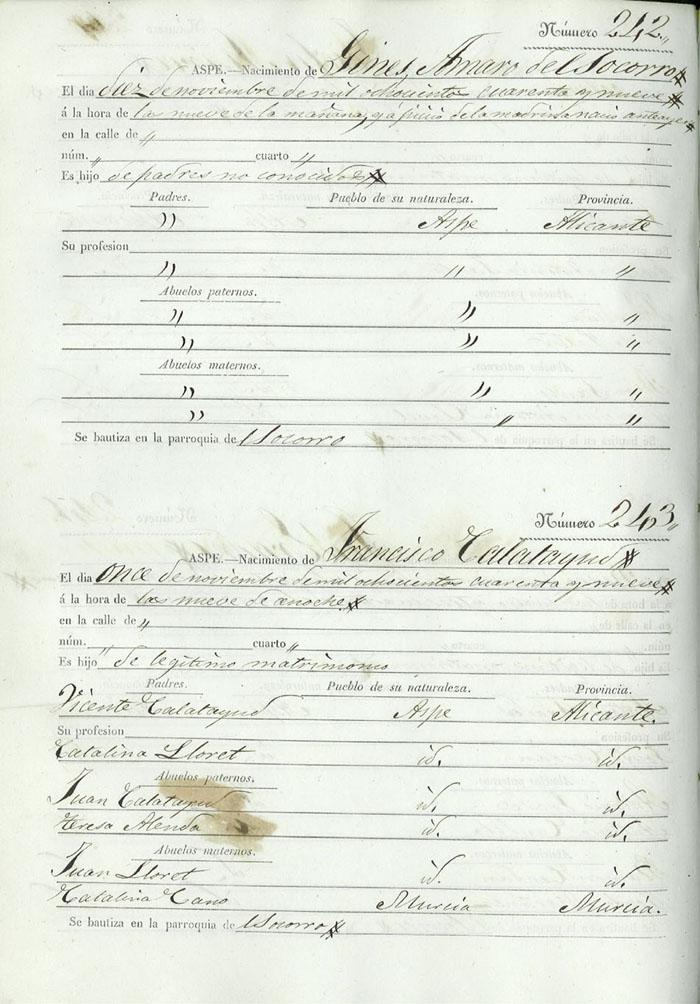 Número 242„
ASPE.—Nacimiento de Gines, Amaro del Socorro
El dia diez de noviembre de mil ochociento cuarenta y nueve
á la hora de las nueve de la mañana, y á juicio de la madrina nacio anteayer
en la calle de „
núm. „ cuarto „
Es hijo de padres no conocidos
Padres. Pueblo de su naturaleza. Provincia.
„ Aspe Alicante
Su profesion
„ „ „
Abuelos paternos.
„ „ „
„ „ „
Abuelos maternos.
„ „ „
„ „ „
Se bautiza en la parroquia del Socorro
Número 243„
ASPE.—Nacimiento de Francisco Calatayud
El dia once de noviembre de mil ochociento cuarenta y nueve
á la hora de las nueve de anoche
en la calle de „
núm. cuarto „
Es hijo de legitimo matrimonio
Padres. Pueblo de su naturaleza. Provincia.
Vicente Calatayud Aspe Alicante.
Su profesion
Catalina Lloret id. id.
Abuelos paternos.
Juan Calatayud id. id.
Teresa Alenda id. id.
Abuelos maternos.
Juan Lloret id. id.
Catalina Cano Murcia Murcia.
Se bautiza en la parroquia del Socorro